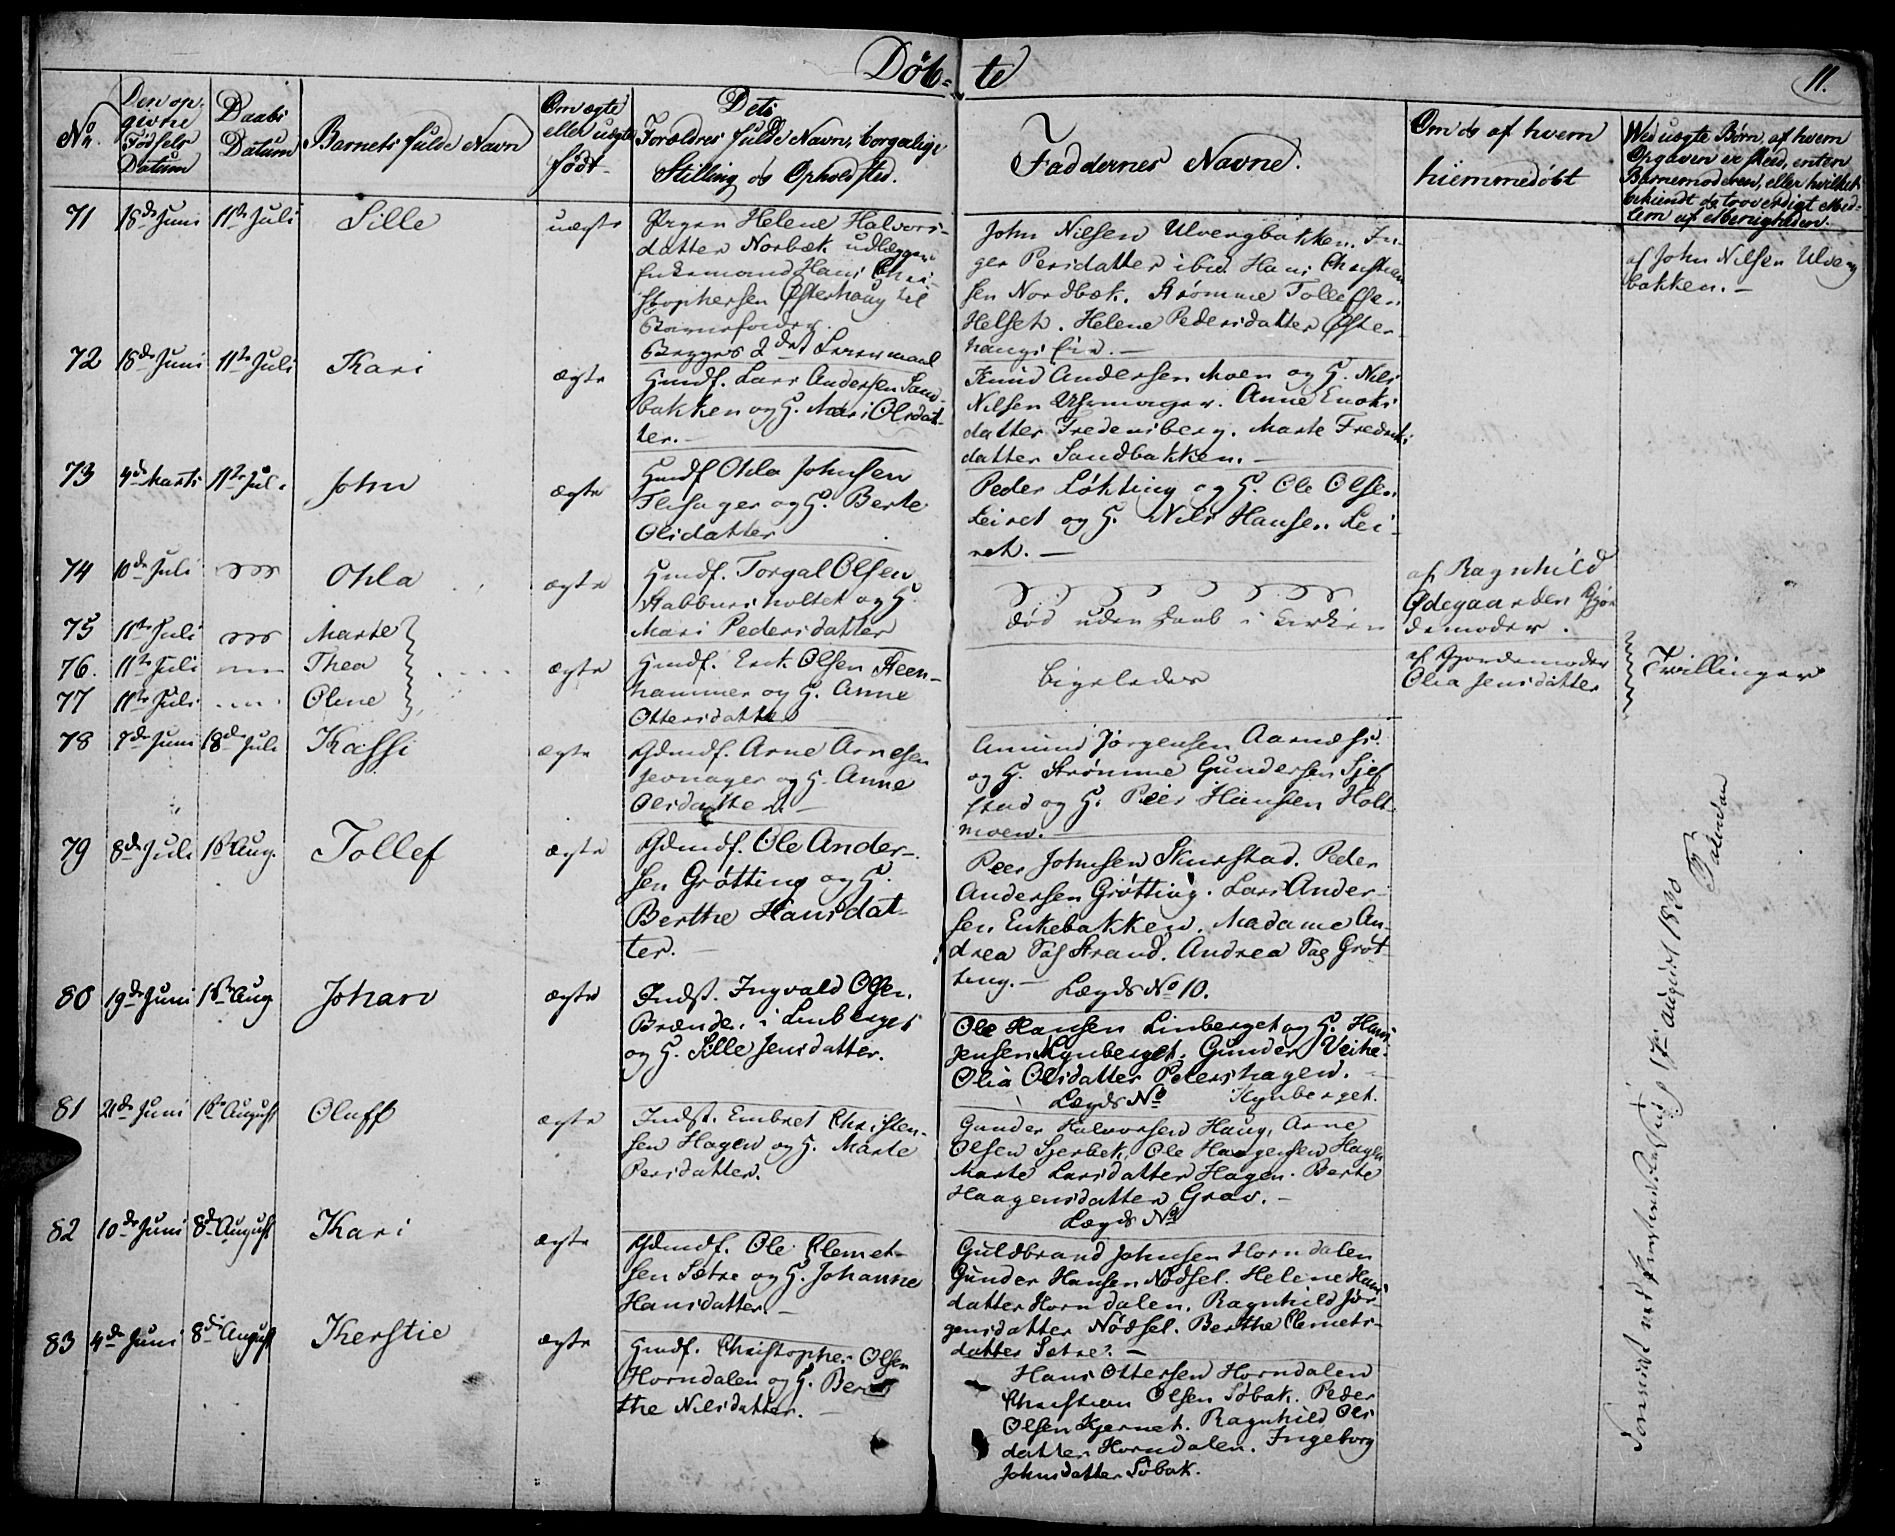 Døb- te
11.
No.
Den op-
givne
Fødsels
Datum
Daabs
Datum
Barnets fulde Navn
Om ægte
eller uægte
født
Dets
Forældres fulde Navn, borgerlige
Stilling og Opholdsted.
Faddernes Navne.
Om og af hvem
hiemmedøbt
Ved uægte Børn, af hvem
Opgaven er skeed, enten
Barnemoderen, eller hvilket
bekiendt og troværdigt Med-
lem af Menigheden.
71 18de Juni 11te Juli Sille uægte
Pigen Helene Halvors-
datter Norbæk udlægger
Enkemand Hans Chri-
stophersen Østerhaug til
Barnefader.
Begges 2det Leiermaal
John Nilsen Ulvengbakken. In-
ger Persdatter ibid. Hans Christian
sen Nordbæk. Strømme Tollefse.
Helset. Helene Pedersdatter Øster-
haugs
af John Nilsen Ulveng
bakken. -
72 18de Juni 11te Juli Kari ægte
Huusf. Lars Andersen Sand-
bakken og H. Mari Olsdat-
ter. -
Knud Andersen Moen og H. Nils
Nilsen. Anne Enoks
datter Fredensberg. Marte Fredriks
datter Sandbakken. -
73 4de Marts 11te Juli John ægte
Huusf Ohla Johnsen
Flisager og H. Berte
Olsdatter
Peder Løkting og H. Ole Olsen
Leiret og H. Nils Hansen Lei-
ret. -
74 10de Juli Ohla ægte
Huusf. Torgal Olsen
Stabbursholtet og H.
Mari Pedersdatter
død uden Daab i Kirken
af Ragnhild
Ødegaarden Gjor
demoder.
75 11te Juli Marte
76. 11te Juli Thea
77 11te Juli Oline
ægte
Huusf. Erik Olsen Steen-
hammer og H. Anne
Ottersdatter
Ligeledes
af Gjordemoder
Olea Jensdatter
Tvillinger
78 7de Juni 18de Juli Kassi ægte
Gdmdf. Arne Arnesen
Jevnager og H. Anne
Olsdatter. -
Amund Jørgensen Aarnæs.
og H. Strømme Gundersen Sjef
stad og H. Peer Hansen Holt-
moen. -
79 8de Juli 1ste Aug. Tollef ægte
Gdmdf. Ole Ander-
sen Grøtting og H.
Berthe Hansdat-
ter. -
Peer Johnsen Skurstad. Peder
Andersen Grøtting. Lars Ander
sen Enkebakken. Madame An-
drea Fas Strand. Andrea Fas Grøt-
ting. - Lægds No 10.
80 19de Juni 1ste Aug. Johan ægte
Indst. Ingvald Olsen.
Brænde. i Linberget
og H. Sille Jensdatter.
Ole Hansen Linberget og H. Hans
Jensen Kynberget. Gunder Veike.
Olia Olsdatter Petershagen. -
Lægds No Kynberget.
81 21de Juni 1ste August Oluff ægte
Indst. Embret Christen-
sen Hagen og H. Marte
Persdatter.
Gunder Halvorsen Haug, Arne
Olsen Sjerbek. Ole Haagensen Hagen
Marte Larsdatter Hagen. Berte
Haagensdatter Grav. -
Lægds No
82 10de Juni 8de August Kari ægte
Gdmdf. Ole Clemet-
sen Sætre og H. Johanne
Hansdatter. -
Guldbrand Johnsen Horndalen
Gunder Hansen Nødsel. Helene Hans
datter Horndalen. Ragnhild Jør-
gensdatter Nødsel. Berthe Clemets-
datter Sætre. -
83 4de Juni 8de August Kerstie ægte
Huusf. Christopher Olsen
Horndalen og H. Ber
the Nilsdatter. -
Hans Ottersen Horndalen
Christian Olsen Søbak. Peder
Olsen Kjernet. Ragnhild Ols
datter Horndalen. Ingeborg
Johnsdatter Søbak.
17 August 1830